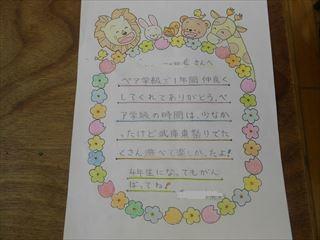 さんへ
ペア学級で1年間仲良く
してくれてありがとう。ペ
ア学級の時間は、少なか
ったけど武庫東祭りでた
くさん遊べて楽しかったよ!
4年生になってもがん
ばってね!